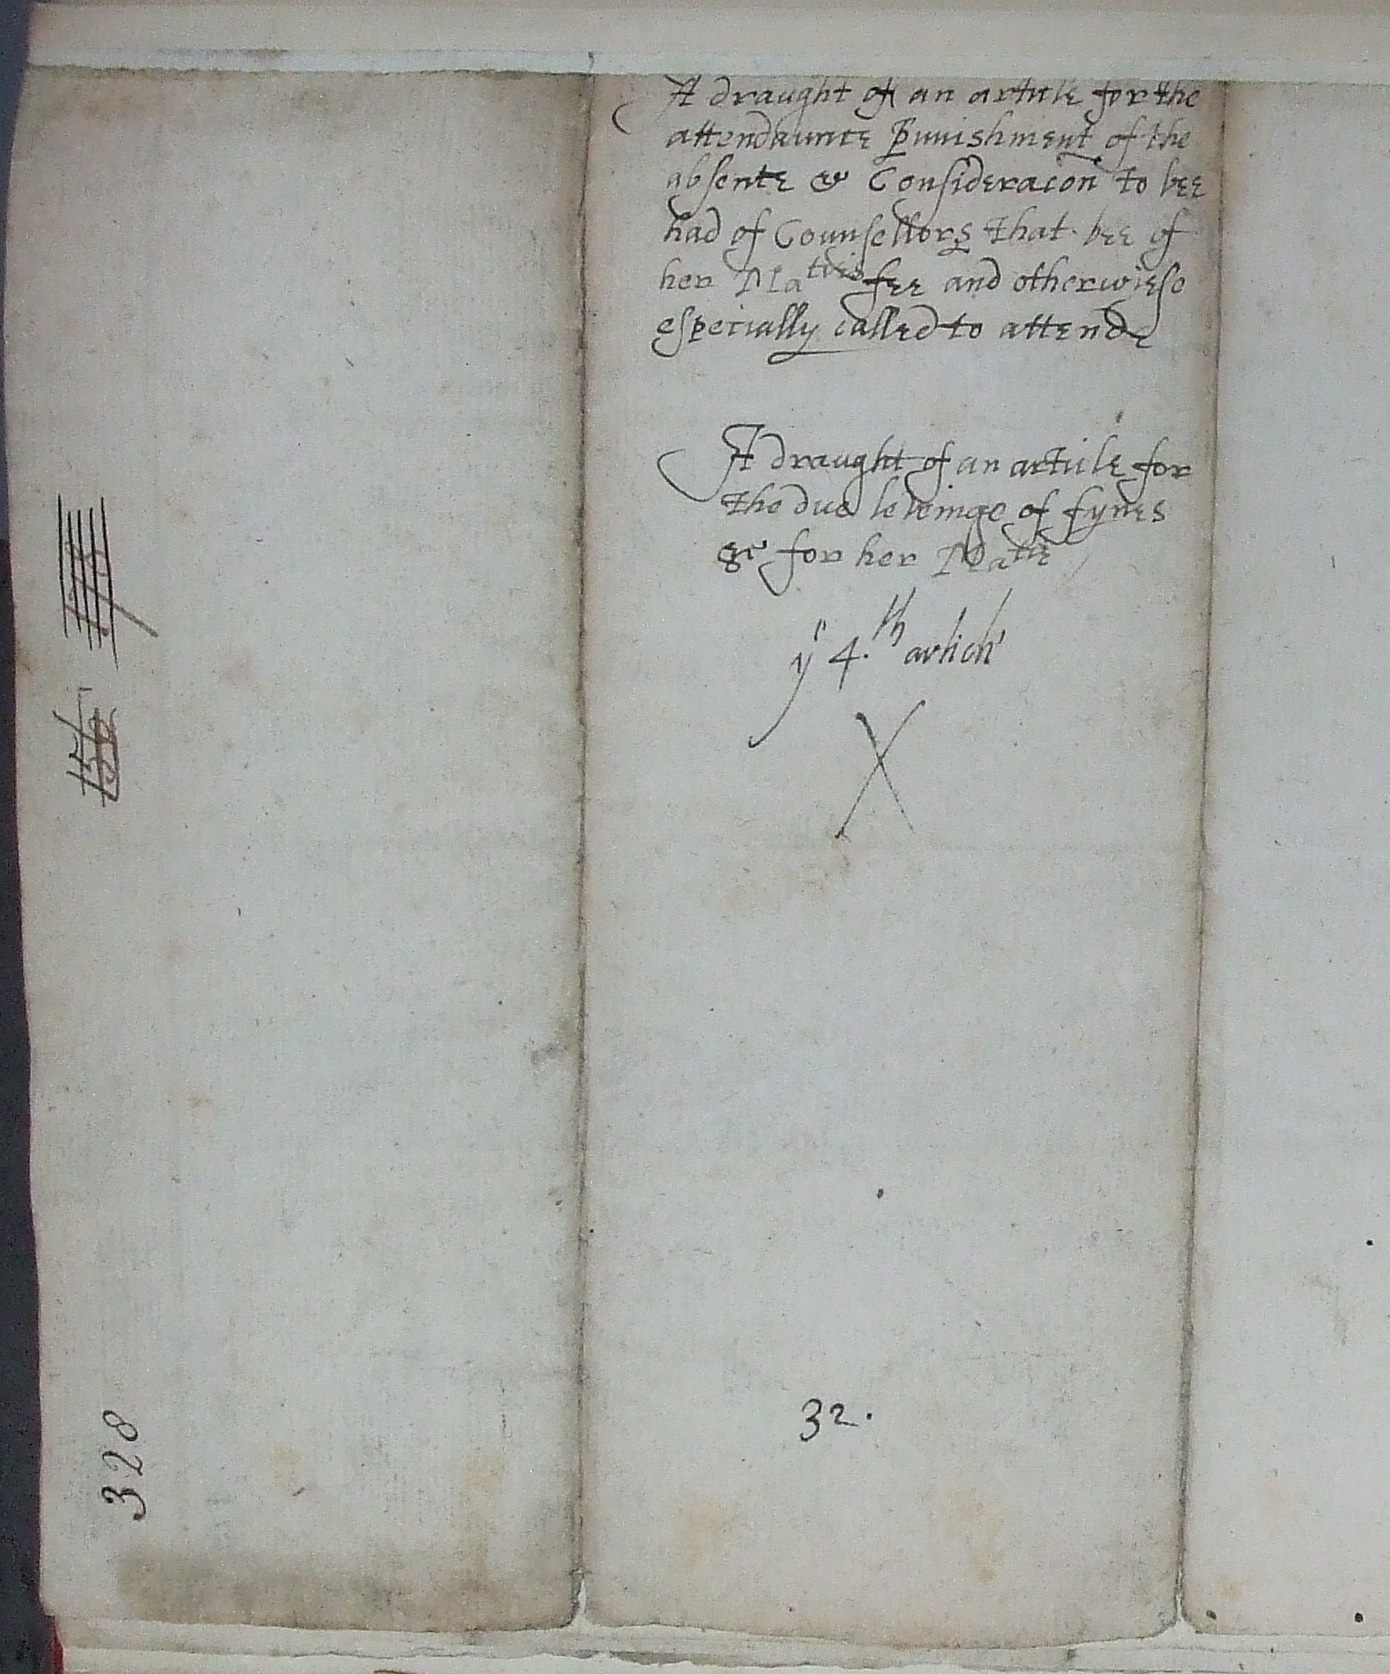 A draught of an article for the
attendaunce Punishment of the
absente & Consideracon to bee
had of Counsellors that bee of
her Maties fee and otherwiese
especially called to attende
A draught of an article for
the due leveinge of fynes
&c for her Matie
ye 4.th article
X
32.
328